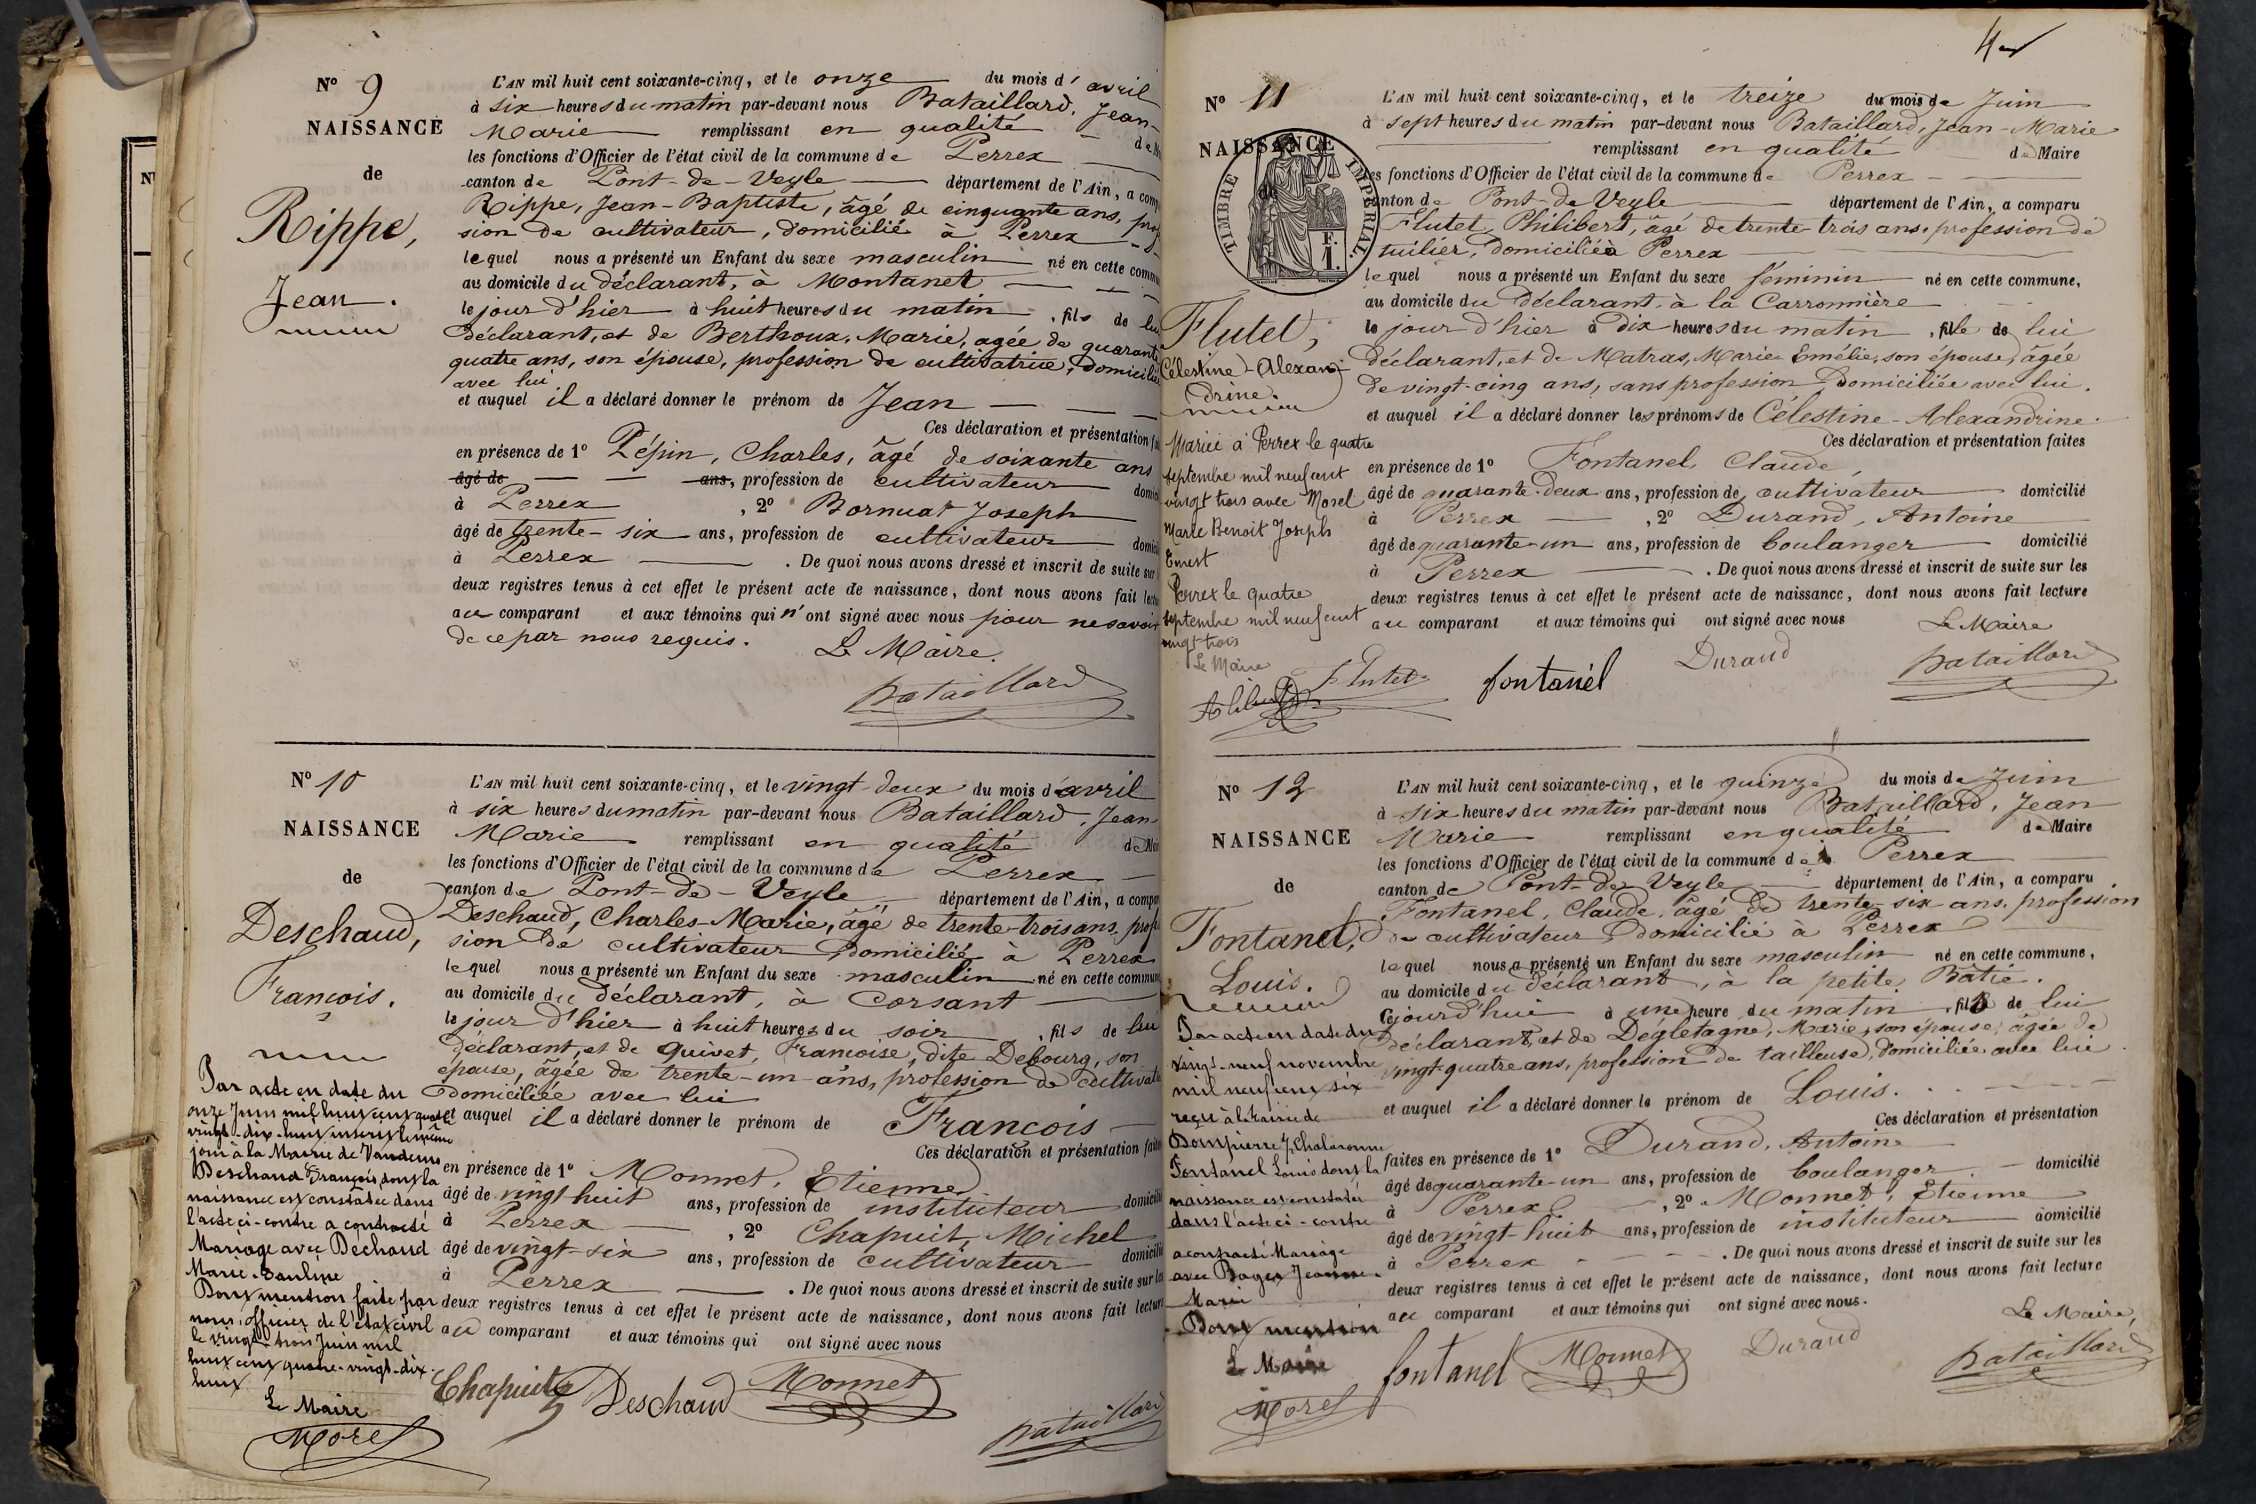 Nº 9
NAISSANCE
de
Rippe,
Jean.
L'AN mil huit cent soixante-cinq, et le onze du mois d'avril
à six heures du matin par-devant nous Bataillard, Jean-
Marie remplissant en qualité de
les fonctions d'Officier de l'état civil de la commune de Perrex
canton de Pont-de-Veyle département de l'Ain, a comp
Rippe, Jean-Baptiste, âgé de cinquante ans, prof
sion de cultivateur, domicilié à Perrex
lequel nous a présenté un Enfant du sexe masculin né en cette comm
au domicile du déclarant, à Montanet
le jour d'hier à huit heures du matin, fils de lui
déclarant, et de Berthoux, Marie, agée de quarante
quatre ans, son épouse, profession de cultivatrice, domiciliée
avec lui
et auquel il a déclaré donner le prénom de Jean
Ces déclaration et présentation
en présence de 1º Pépin, Charles, âgé de soixante ans
âgé de ans, profession de cultivateur domici
à Perrex, 2º Bornuat Joseph
âgé de trente-six ans, profession de cultivateur domici
à Perrex. De quoi nous avons dressé et inscrit de suite sur
deux registres tenus à cet effet le présent acte de naissance, dont nous avons fait lectu
au comparant et aux témoins qui n'ont signé avec nous pour ne savoir
de ce par nous requis. Le Maire.
Bataillard
Nº 10
NAISSANCE
de
Deschaud,
François.
L'AN mil huit cent soixante-cinq, et le vingt-deux du mois d'avril
à six heures du matin par-devant nous Bataillard, Jean
Marie remplissant en qualité de Mai
les fonctions d'Officier de l'état civil de la commune de Perrex
canton de Pont-de-Veyle département de l'Ain, a compa
Deschaud, Charles-Marie, âgé de trente-trois ans, profes
sion de cultivateur domicilié à Perrex
lequel nous a présenté un Enfant du sexe masculin né en cette commune
au domicile du déclarant, à Corsant
le jour d'hier à huit heures du soir, fils de lui
déclarant, et de Guivet, Françoise, dite Debourg, son
épouse, âgée de trente-un ans, profession de cultivat
domiciliée avec lui
et auquel il a déclaré donner le prénom de François
Ces déclaration et présentation faites
en présence de 1º Monnet, Etienne
âgé de vingt huit ans, profession de instituteur domicilié
à Perrex, 2º Chapuit, Michel
âgé de vingt-six ans, profession de cultivateur domicilié
à Perrex. De quoi nous avons dressé et inscrit de suite sur les
deux registres tenus à cet effet le présent acte de naissance, dont nous avons fait lecture
au comparant et aux témoins qui ont signé avec nous
Chapuit Deschaud Monnet
Bataillard
Par acte en date du
onze Juin mil huit cent quatre
vingt-dix-huit inscrit le même
jour à la Mairie de
Deschaud François dont la
naissance est constatée dans
l'acte ci-contre a contracté
Mariage avec Déchaud
Marie-Pauline
Dont mention faite par
nous, officier de l'état civil
le vingt-trois Juin mil
huit cent quatre-vingt-dix-
huit
Le Maire
Morel
4
Nº 11
NAISSANCE
de
TIMBRE IMPÉRIAL
F.
1.
Flutet,
Célestine-Alexan-
drine.
L'AN mil huit cent soixante-cinq, et le treize du mois de Juin
à sept heures du matin par-devant nous Bataillard, Jean-Marie
remplissant en qualité de Maire
les fonctions d'Officier de l'état civil de la commune de Perrex
canton de Pont-de-Veyle département de l'Ain, a comparu
Flutet, Philibert, âgé de trente-trois ans, profession de
tuilier, domicilié à Perrex
lequel nous a présenté un Enfant du sexe féminin né en cette commune,
au domicile du déclarant, à la Carronnière
le jour d'hier à dix heures du matin, fille de lui
déclarant, et de Matras, Marie Emélie, son épouse, âgée
de vingt-cinq ans, sans profession, domiciliée avec lui.
et auquel il a déclaré donner les prénoms de Célestine-Alexandrine.
Ces déclaration et présentation faites
en présence de 1º Fontanel, Claude,
âgé de quarante-deux ans, profession de cultivateur domicilié
à Perrex, 2º Durand, Antoine
âgé de quarante-un ans, profession de boulanger domicilié
à Perrex. De quoi nous avons dressé et inscrit de suite sur les
deux registres tenus à cet effet le présent acte de naissance, dont nous avons fait lecture
au comparant et aux témoins qui ont signé avec nous Le Maire
Flutet fontanel Durand Bataillard
Mariée à Perrex le quatre
septembre mil neuf cent
vingt trois avec Morel
Marie Benoit Joseph
Ernest
Perrex le quatre
septembre mil neuf cent
vingt trois
Le Maire
Nº 12
NAISSANCE
de
Fontanel,
Louis.
L'AN mil huit cent soixante-cinq, et le quinze du mois de Juin
à six heures du matin par-devant nous Bataillard, Jean
Marie remplissant en qualité de Maire
les fonctions d'Officier de l'état civil de la commune de Perrex
canton de Pont-de-Veyle département de l'Ain, a comparu
Fontanel, Claude, âgé de trente-six ans, profession
de cultivateur domicilié à Perrex
lequel nous a présenté un Enfant du sexe masculin né en cette commune,
au domicile du déclarant, à la petite Batie.
cejourd'hui à une heure du matin, fils de lui
déclarant, et de Degletagne, Marie, son épouse, âgée de
vingt-quatre ans, profession de tailleuse, domiciliée avec lui.
et auquel il a déclaré donner le prénom de Louis.
Ces déclaration et présentation
faites en présence de 1º Durand, Antoine
âgé de quarante-un ans, profession de boulanger domicilié
à Perrex, 2º Monnet, Etienne
âgé de vingt-huit ans, profession de instituteur domicilié
à Perrex. De quoi nous avons dressé et inscrit de suite sur les
deux registres tenus à cet effet le présent acte de naissance, dont nous avons fait lecture
au comparant et aux témoins qui ont signé avec nous.
Le Maire,
fontanel Monnet Durand Bataillard
Par acte en date du
vingt-neuf novembre
mil neuf cent six
reçu à la Mairie de
Dompierre s/ Chalaronne
Fontanel Louis dont la
naissance est constatée
dans l'acte ci-contre
a contracté Mariage
avec Bages Jeanne
Marie
Dont mention
Le Maire
Morel